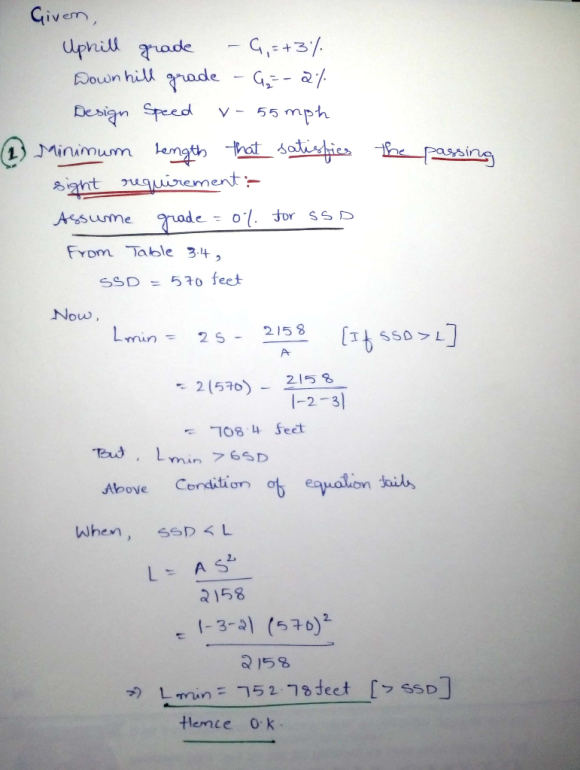 Given,
Uphill grade - G₁=+3%
Downhill grade - G₂=-2%
Design Speed V- 55mph
① Minimum Length that satisfies the passing
sight requirement:-
Assume grade = 0% for SSD
From Table 3.4,
SSD = 570 feet
Now,
Lmin = 2S - 2158/A [If SSD>L]
= 2(570) - 2158/|-2-3|
= 708.4 feet
But, Lmin > SSD
Above Condition of equation fails
When, SSD<L
L = AS²/2158
= |-3-2| (570)²/2158
⇒) Lmin = 752.78 feet [> SSD]
Hence O.K.